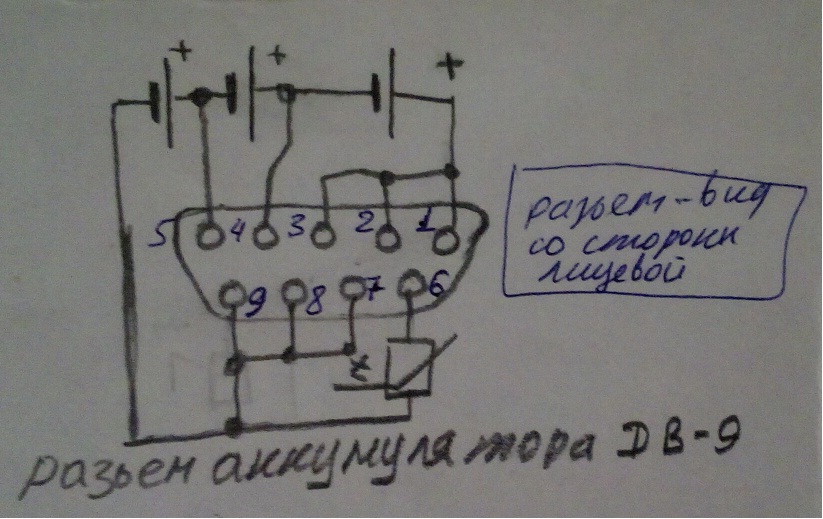 + + +
5 4 3 2 1
9 8 7 6
t
разъем - вид
со стороны
лицевой
разьем аккумулятора DB-9